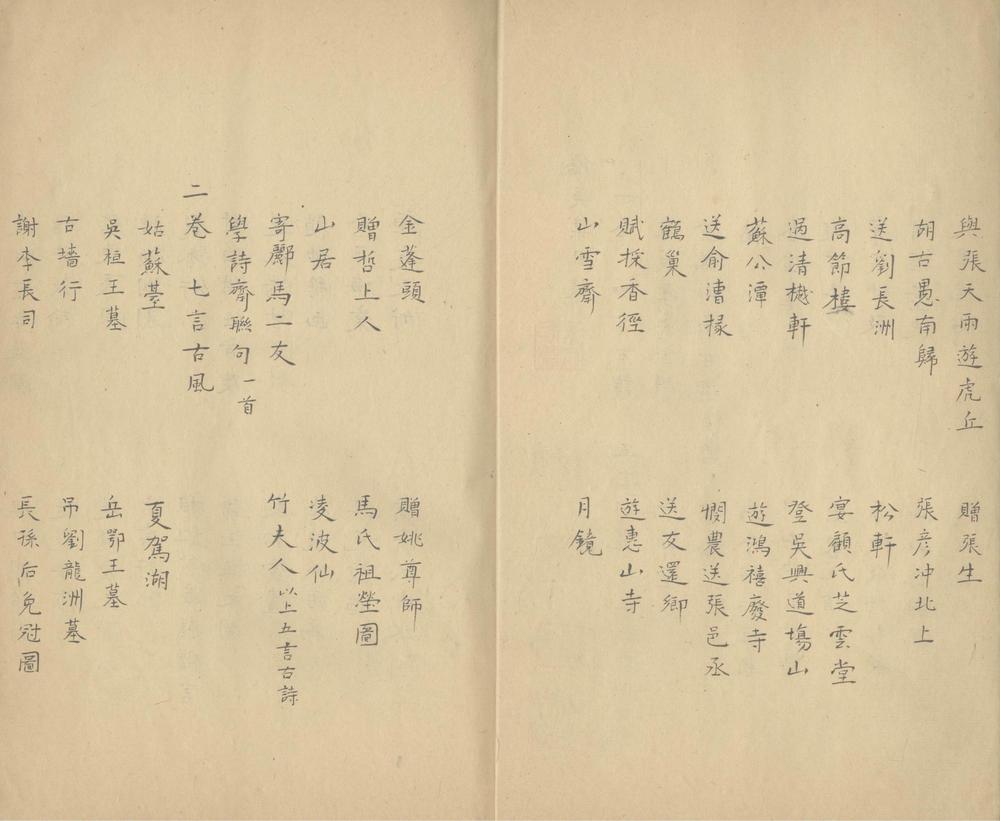 與張天雨遊虎丘　贈張生
胡古愚南歸　張彥冲北上
送劉長洲　松軒
高節樓　宴顧氏芝雲堂
過清樾軒　登吳興道場山
蘇公潭　遊鴻禧廢寺
送俞漕掾　憫農送張邑丞
鶴巢　送友還鄉
賦採香徑　遊惠山寺
山雪齋　月鏡
金蓬頭　贈姚尊師
贈哲上人　馬氏祖塋圖
山居　凌波仙
寄鄺馬二友　竹夫人 以上五言古詩
學詩齋聯句 一首
二卷 七言古風
姑蘇臺　夏駕湖
吳桓王墓　岳鄂王墓
古墻行　吊劉龍洲墓
謝李長司　長孫后免冠圖